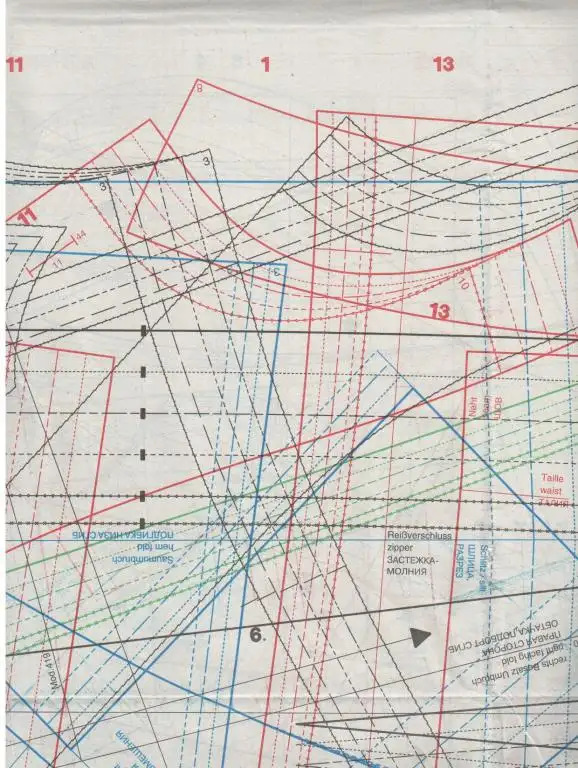 11
1
13
8
3
3
11
44
11
3
10
13
Naht
seam
ШОВ
Taille
waist
ТАЛИЯ
Reißverschluss
zipper
ЗАСТЕЖКА-
МОЛНИЯ
Saumumbruch
hem fold
ПОДГИБКА НИЗА СГИБ
Schlitz / slit
ШЛИЦА
РАЗРЕЗ
6
rechts Besatz Umbruch
right facing fold
ПРАВАЯ СТОРОНА
ОБТАЧКА, ПОДБОРТ СГИБ